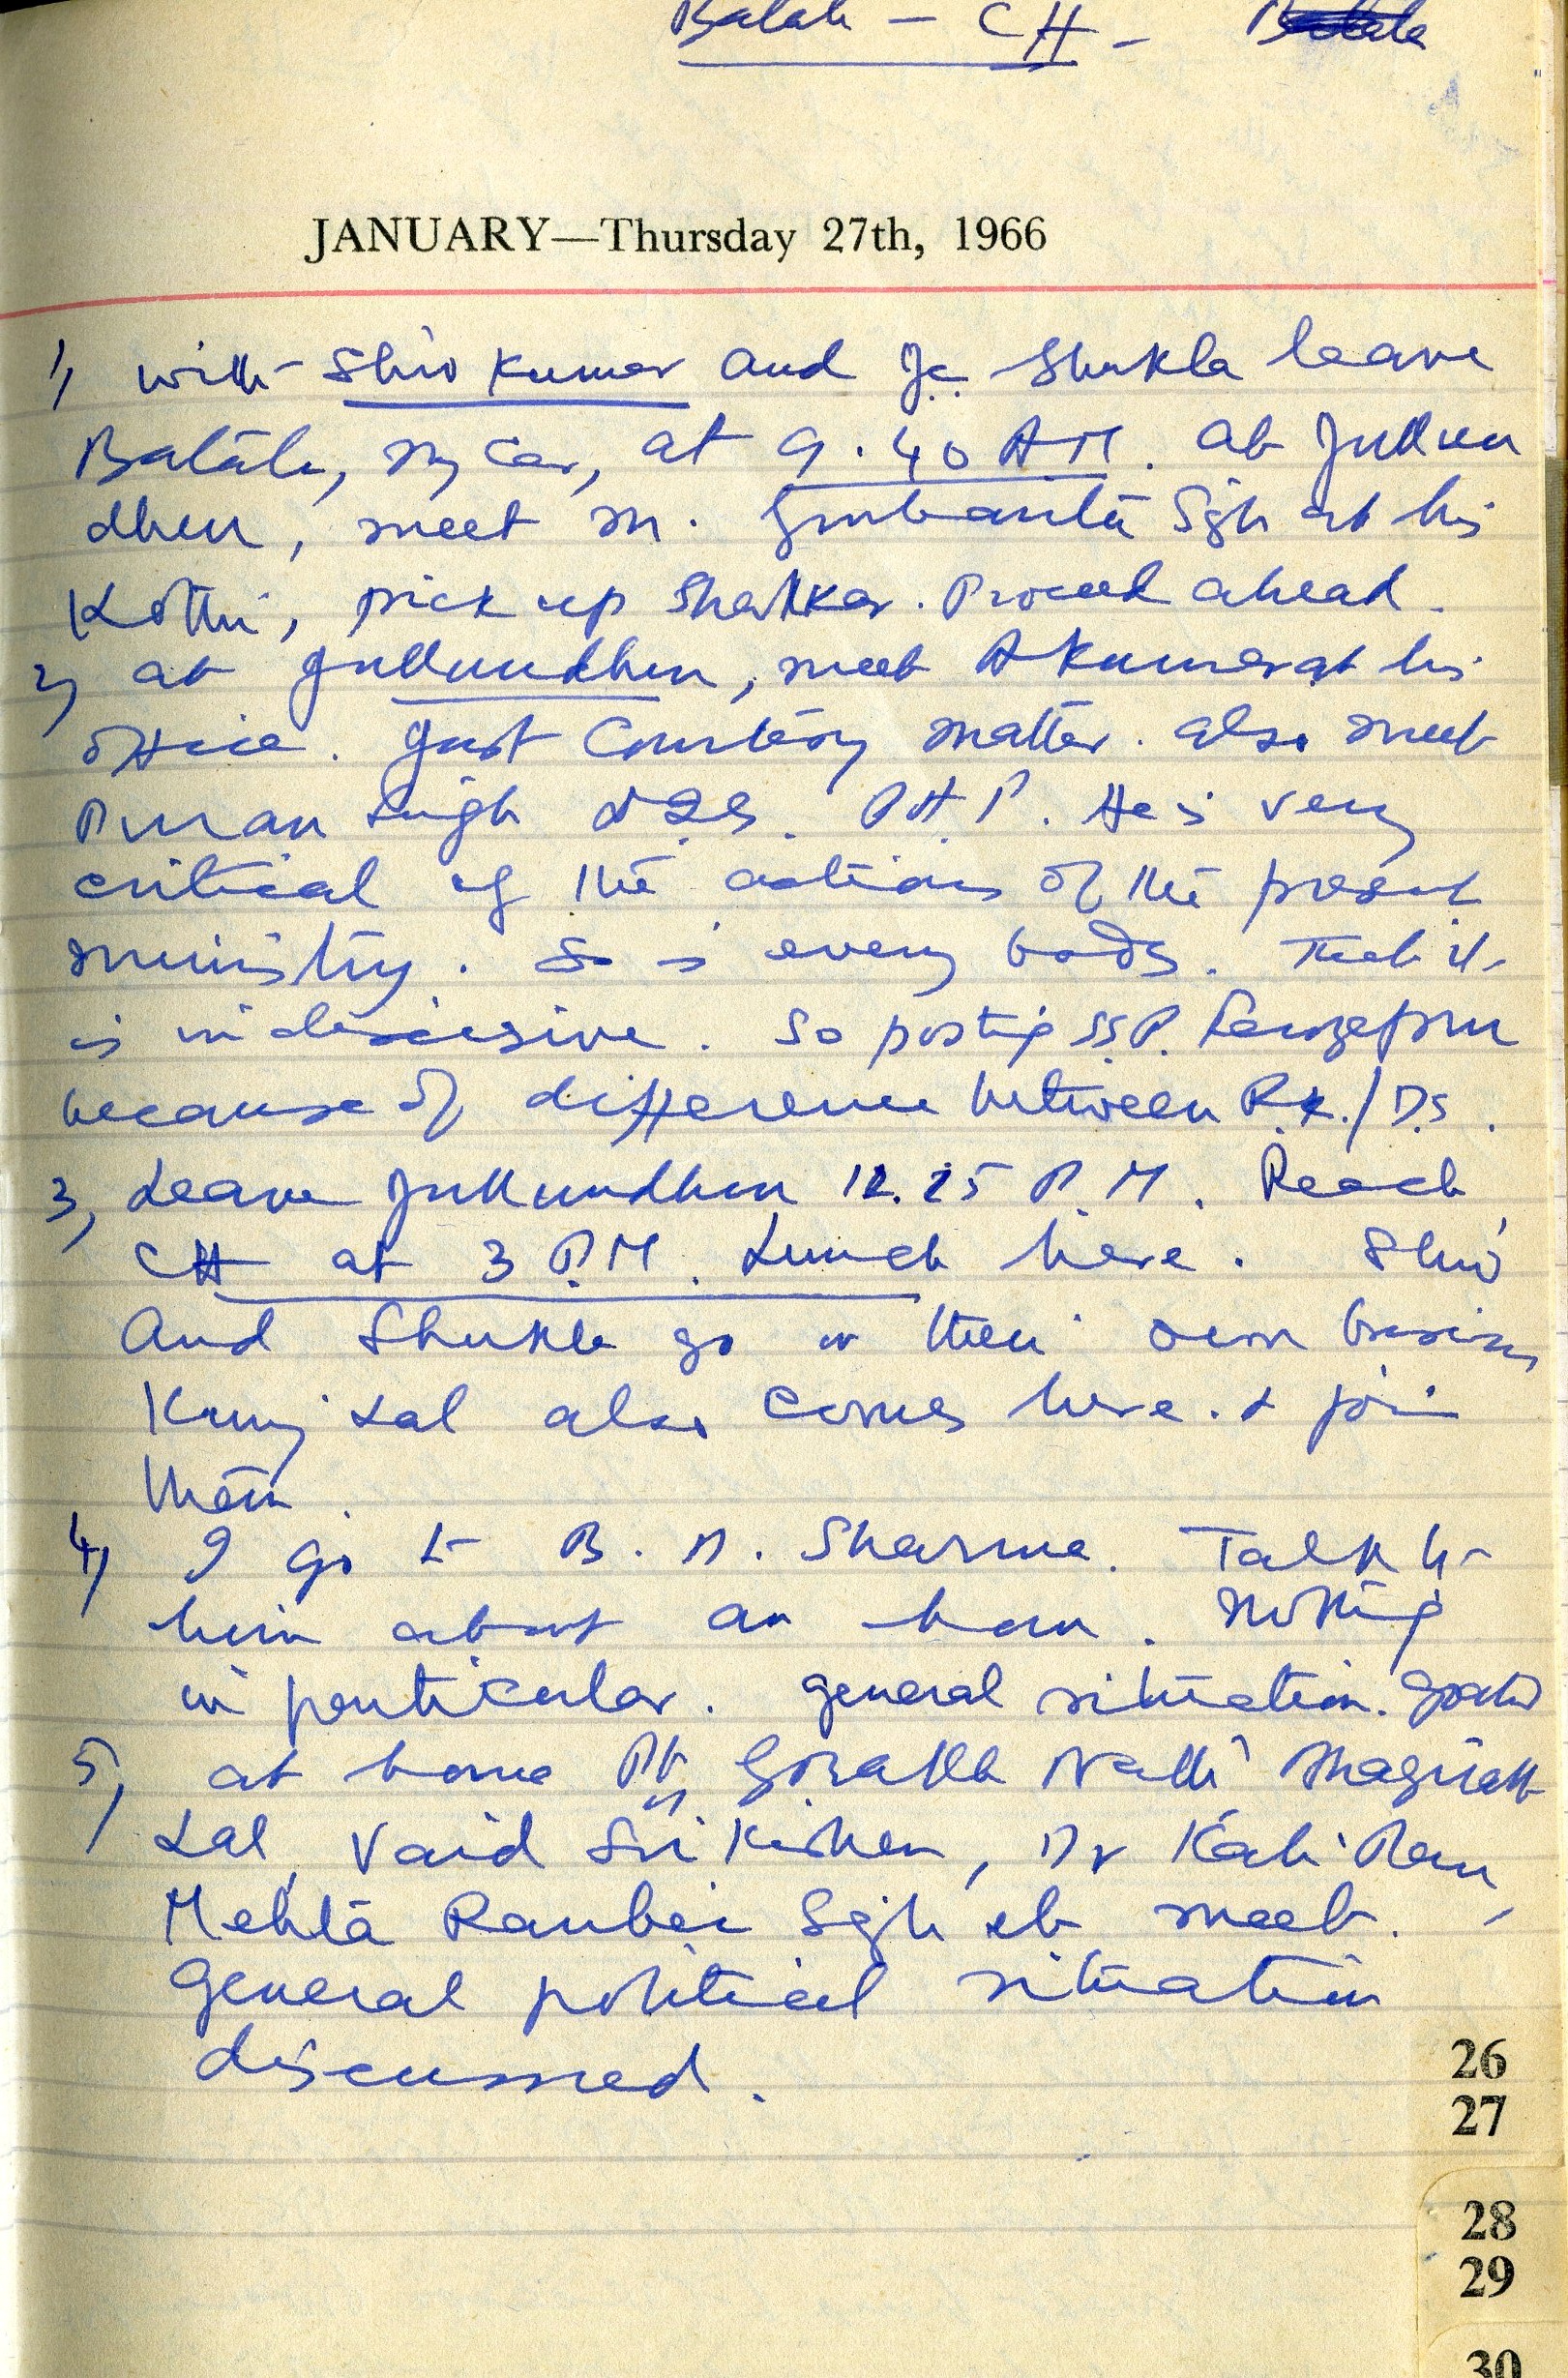 Batala - CH -
JANUARY—Thursday 27th, 1966
1, with Shiv Kumar and J.C. Shukla leave
Batala, my car, at 9.40 AM. at Jullun
dhur, meet Gurbanta Sgh at his
Kothi, pick up Proceed ahead.
2, at Jullundhur, meet A Kumar at his
office. Just Courtesy matter. also meet
Puran Singh DIG. PAP. He is very
critical of the actions of the present
ministry. So is every body. That it
is indecisive. So posting SSP. Ferozepur
because of difference between RK./DS.
3, Leave Jullundhur 12.25 P.M. Reach
CH at 3 P.M. Lunch here. Shiv
and Shukla go on their own business
Kunj Lal also comes here. & join
them.
4, I go to B. D. Sharma. Talk to
him about an hour. Nothing
in particular. general situation.
5, at home Pt. Gorakh Nath
Lal, Vaid Sri Kishen, Dr Kali Ram,
Mehta Ranbir Sgh etc meet.
General political situation
discussed.
26
27
28
29
30